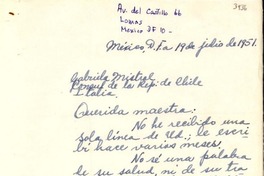 Av. del Castillo 66
Lomas
México DF 10 -
México, D.F. a 19 de julio de 1951.
Gabriela Mistral
Consul de la Rep. de Chile
Italia.
Querida maestra:
No he recibido una
sola línea de Ud.; le escri
bí hace varios meses.
No sé una palabra
de su salud, ni de su tra